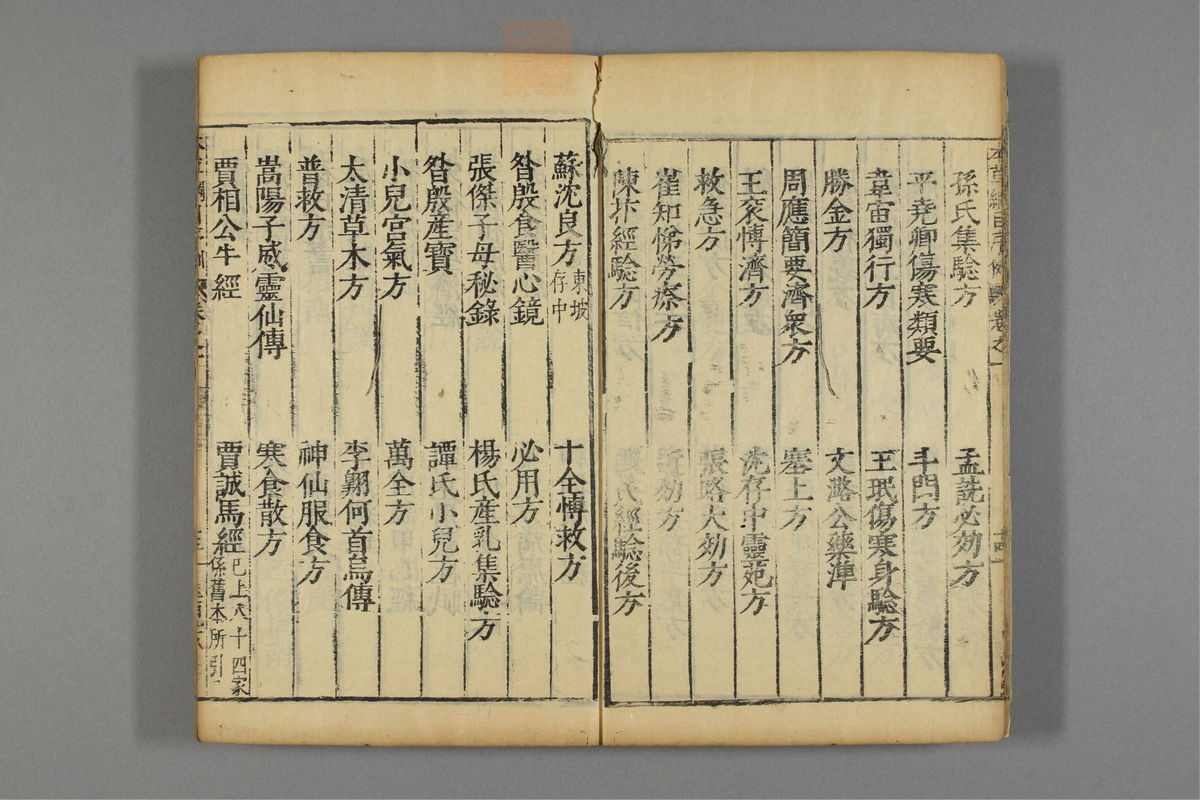 孫氏集驗方　孟詵必効方
平堯卿傷寒類要　斗門方
韋宙獨行方　王珉傷寒身驗方
勝金方　文潞公藥凖
周應簡要濟衆方　塞上方
王袞愽濟方　沈存中靈苑方
救急方　張路大効方
崔知悌勞瘵方
陳抃經驗方
蘇沈良方東坡存中　十全愽救方
昝殷食醫心鏡　必用方
張傑子母秘錄　楊氏産乳集驗方
昝殷産寳　譚氏小兒方
小兒宮氣方　萬全方
太清草木方　李翺何首烏傳
普救方　神仙服食方
嵩陽子威靈仙傳　寒食散方
賈相公牛經　賈誠馬經已上八十四家係舊本所引